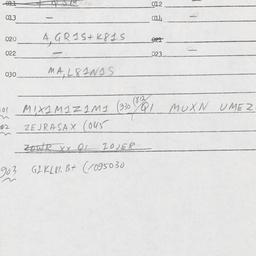 011 012
013 — 014 —
020 A,GR1S+K81S 021
022 — 023 —
030 MA,L81N1S
01 MIX1M1Z1M1 (930 QI MUXN UMEZ
02 ZEJRASAX (045
ZOWR XX QI ZOJER
903 G1KLM.B+ (1095030